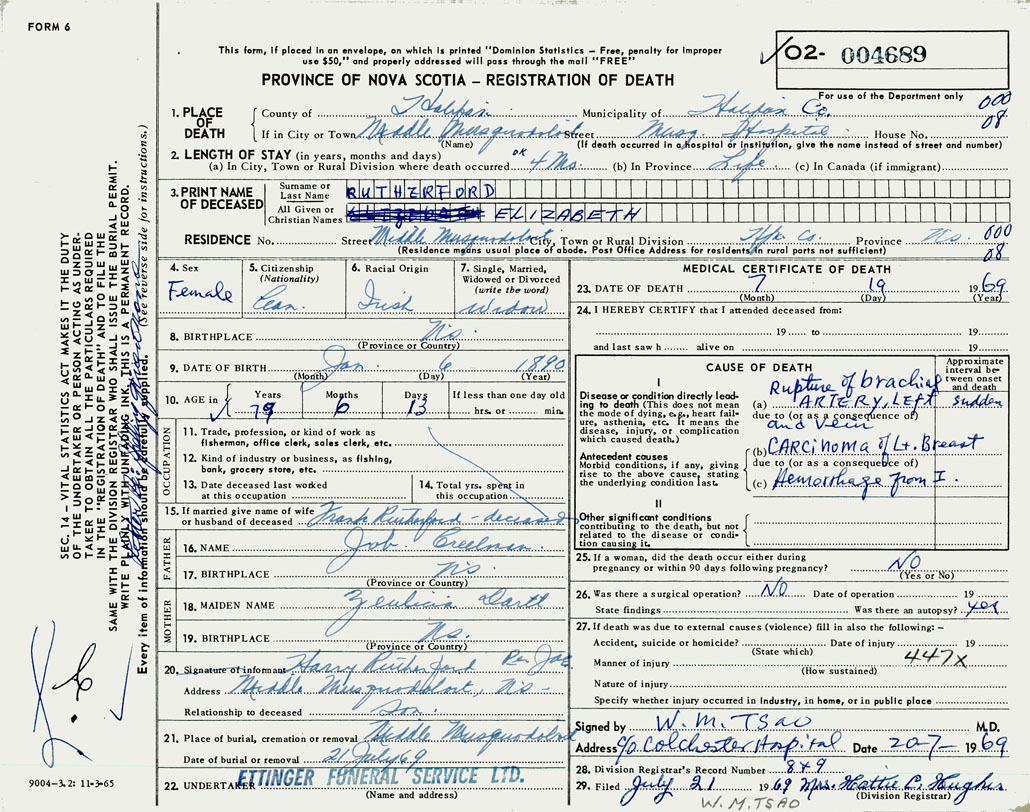 FORM 6
This form, if placed in an envelope, on which is printed "Dominion Statistics – Free, penalty for improper
use $50," and properly addressed will pass through the mail "FREE"
PROVINCE OF NOVA SCOTIA – REGISTRATION OF DEATH
02- 004689
For use of the Department only
000
08
1. PLACE OF DEATH
County of Halifax Municipality of Halifax Co.
If in City or Town Middle Musquodoboit Street Musq. Hospital House No.
(Name) (If death occurred in a hospital or institution, give the name instead of street and number)
2. LENGTH OF STAY (in years, months and days)
(a) In City, Town or Rural Division where death occurred OK 4 Ms. (b) In Province Life (c) In Canada (if immigrant)
3. PRINT NAME OF DECEASED
Surname or Last Name RUTHERFORD
All Given or Christian Names ELIZABETH
RESIDENCE No. Street Middle Musquodoboit City, Town or Rural Division Hfx Co. Province N.S. 000
(Residence means usual place of abode. Post Office Address for residents in rural parts not sufficient) 08
4. Sex
Female
5. Citizenship
(Nationality)
Can.
6. Racial Origin
Irish
7. Single, Married,
Widowed or Divorced
(write the word)
Widow
8. BIRTHPLACE N.S.
(Province or Country)
9. DATE OF BIRTH Jan 6 1890
(Month) (Day) (Year)
10. AGE in Years Months Days If less than one day old
79 6 13 hrs. or min.
OCCUPATION
11. Trade, profession, or kind of work as
fisherman, office clerk, sales clerk, etc.
12. Kind of industry or business, as fishing,
bank, grocery store, etc.
13. Date deceased last worked
at this occupation
14. Total yrs. spent in
this occupation
15. If married give name of wife
or husband of deceased Frank Rutherford - deceased
FATHER
16. NAME Job Creelman
17. BIRTHPLACE N.S.
(Province or Country)
MOTHER
18. MAIDEN NAME
19. BIRTHPLACE N.S.
(Province or Country)
20. Signature of informant Harry Rutherford Per
Address Middle Musquodoboit, N.S.
Relationship to deceased Son
21. Place of burial, cremation or removal Middle Musquodoboit
Date of burial or removal 21 July 69
22. UNDERTAKER ETTINGER FUNERAL SERVICE LTD.
(Name and address)
MEDICAL CERTIFICATE OF DEATH
23. DATE OF DEATH 7 19 1969
(Month) (Day) (Year)
24. I HEREBY CERTIFY that I attended deceased from:
19 to 19
and last saw h alive on 19
CAUSE OF DEATH
Approximate interval between onset and death
I
Disease or condition directly leading to death (This does not mean the mode of dying, e.g., heart failure, asthenia, etc. It means the disease, injury, or complication which caused death.)
(a) Rupture of brachial ARTERY, LEFT sudden
due to (or as a consequence of)
and vein
Antecedent causes
Morbid conditions, if any, giving rise to the above cause, stating the underlying condition last.
(b) CARCINOMA of Lt. Breast
due to (or as a consequence of)
(c) Hemorrhage from I.
II
Other significant conditions contributing to the death, but not related to the disease or condition causing it.
25. If a woman, did the death occur either during
pregnancy or within 90 days following pregnancy? NO
(Yes or No)
26. Was there a surgical operation? NO Date of operation 19
State findings Was there an autopsy? yes
27. If death was due to external causes (violence) fill in also the following: –
Accident, suicide or homicide? Date of injury 19
(State which)
Manner of injury 447X
(How sustained)
Nature of injury
Specify whether injury occurred in Industry, in home, or in public place
Signed by W. M. TSAO M.D.
Address c/o Colchester Hospital Date 20-7-1969
28. Division Registrar's Record Number 849
29. Filed July 21 1969 Mrs. Hattie C. Hughes
(Division Registrar)
W. M. TSAO
SEC. 14 – VITAL STATISTICS ACT MAKES IT THE DUTY
OF THE UNDERTAKER OR PERSON ACTING AS UNDER-
TAKER TO OBTAIN ALL THE PARTICULARS REQUIRED
IN THE "REGISTRATION OF DEATH" AND TO FILE THE
SAME WITH THE DIVISION REGISTRAR WHO SHALL ISSUE THE BURIAL PERMIT.
WRITE PLAINLY WITH UNFADING INK, THIS IS A PERMANENT RECORD.
Every item of information should be carefully supplied. (See reverse side for instructions.)
9004-3.2: 11-3-65